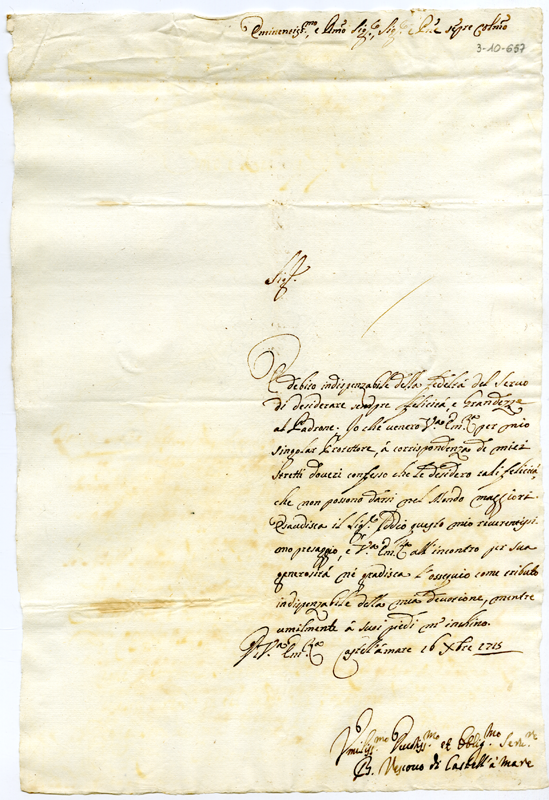 Eminentiss.mo, e Rmo Sig.re, Sig.re e Pne sepre Colmo
3-10-657
Sig.r
È debito indispenzabile della fedeltà del Servo
di desiderare sempre felicità, e Grandezze
al Padrone. Io che venero V.ra Em.za per mio
singolar Protettore, à corrispondenza de miei
stretti doveri confesso che le desidero tali felicità
che non possono darsi nel Mondo maggiori.
Esaudisca il Sig.re Iddio questo mio riverentissi
mo presaggio, e V.ra Em.za all'incontro per sua
generosità nè gradisca l'ossequio come tributo
indispenzabile della mia devozione, mentre
umilmente à suoi piedi m'inchino.
Di V.ra Em.za Castell'à mare 16 Xbre 1715
Umiliss.mo Devotiss.mo et Oblig.mo Serv.re
Vescovo di Castell'à Mare